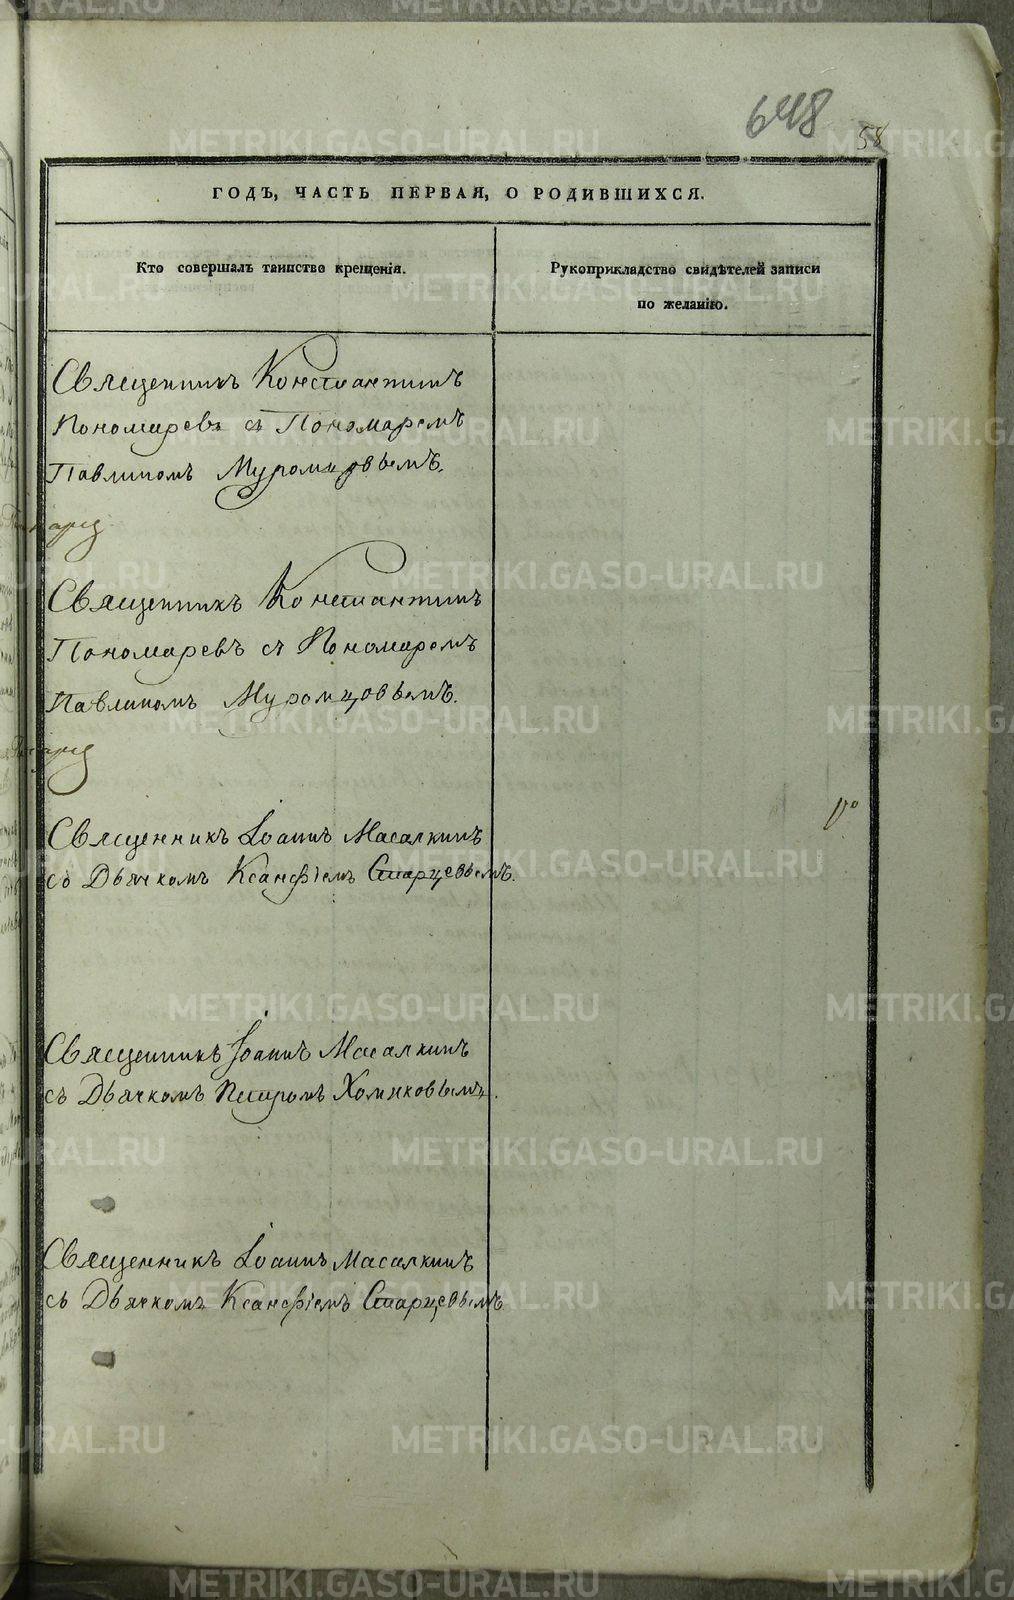 648
58
ГОДЪ, ЧАСТЬ ПЕРВАЯ, О РОДИВШИХСЯ.
Кто совершалъ таинство крещенія.
Рукоприкладство свидѣтелей записи
по желанію.
Священникъ Константинъ
Пономаревъ съ Пономаремъ
Павлиномъ Муромцовымъ.
Священникъ Константинъ
Пономаревъ съ Пономаремъ
Павлиномъ Муромцовымъ.
Священникъ Іоаннъ Масалкинъ
съ Дьячкомъ Ксанфіемъ Старцевымъ.
Священникъ Іоаннъ Масалкинъ
съ Дьячкомъ Петромъ Хомяковымъ.
Священникъ Іоаннъ Масалкинъ
съ Дьячкомъ Ксанфіемъ Старцевымъ
METRIKI.GASO-URAL.RU